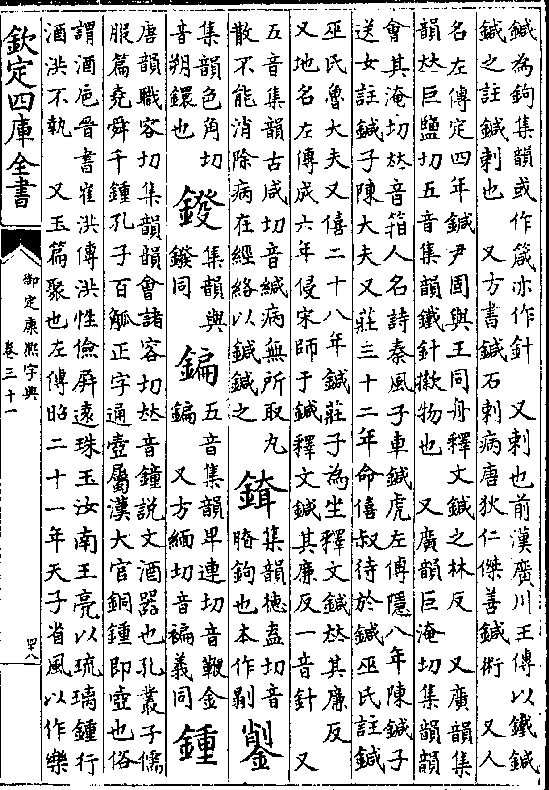 鍼為鉤集韻或作箴亦作針　又刺也前漢廣川王傳以鐵鍼
鍼之註鍼刺也　又方書鍼石刺病唐狄仁傑善鍼術　又人
名左傳定四年鍼尹固與王同舟釋文鍼之林反　又廣韻集
韻𠀤巨鹽切五音集韻鐵針𢷤物也　又廣韻巨淹切集韻韻
會其淹切𠀤音箝人名詩秦風子車鍼虎左傳隱八年陳鍼子
送女註鍼子陳大夫又莊三十二年命僖叔待於鍼巫氏註鍼
巫氏魯大夫又僖二十八年鍼莊子為坐釋文鍼𠀤其廉反
又地名左傳成六年侵宋師于鍼釋文鍼其廉反一音針　又
五音集韻古咸切音緘病無所取丸
散不能消除病在經絡以鍼鍼之
集韻德盍切音
䀫鉤也本作剔
集韻色角切
音朔鐶也
鏺
集韻與
鏺同
鍽
五音集韻卑連切音鞭金
鍽　又方緬切音褊義同
鍾
唐韻職容切集韻韻會諸容切𠀤音鐘說文酒器也孔叢子儒
服篇堯舜千鍾孔子百觚正字通壺屬漢大官銅鍾即壺也俗
謂酒卮晉書崔洪傳洪性儉屏遠珠玉汝南王亮以琉璃鍾行
酒洪不執　又玉篇聚也左傳昭二十一年天子省風以作樂
欽定四庫全書
御定康熙字典
卷三十一
四八